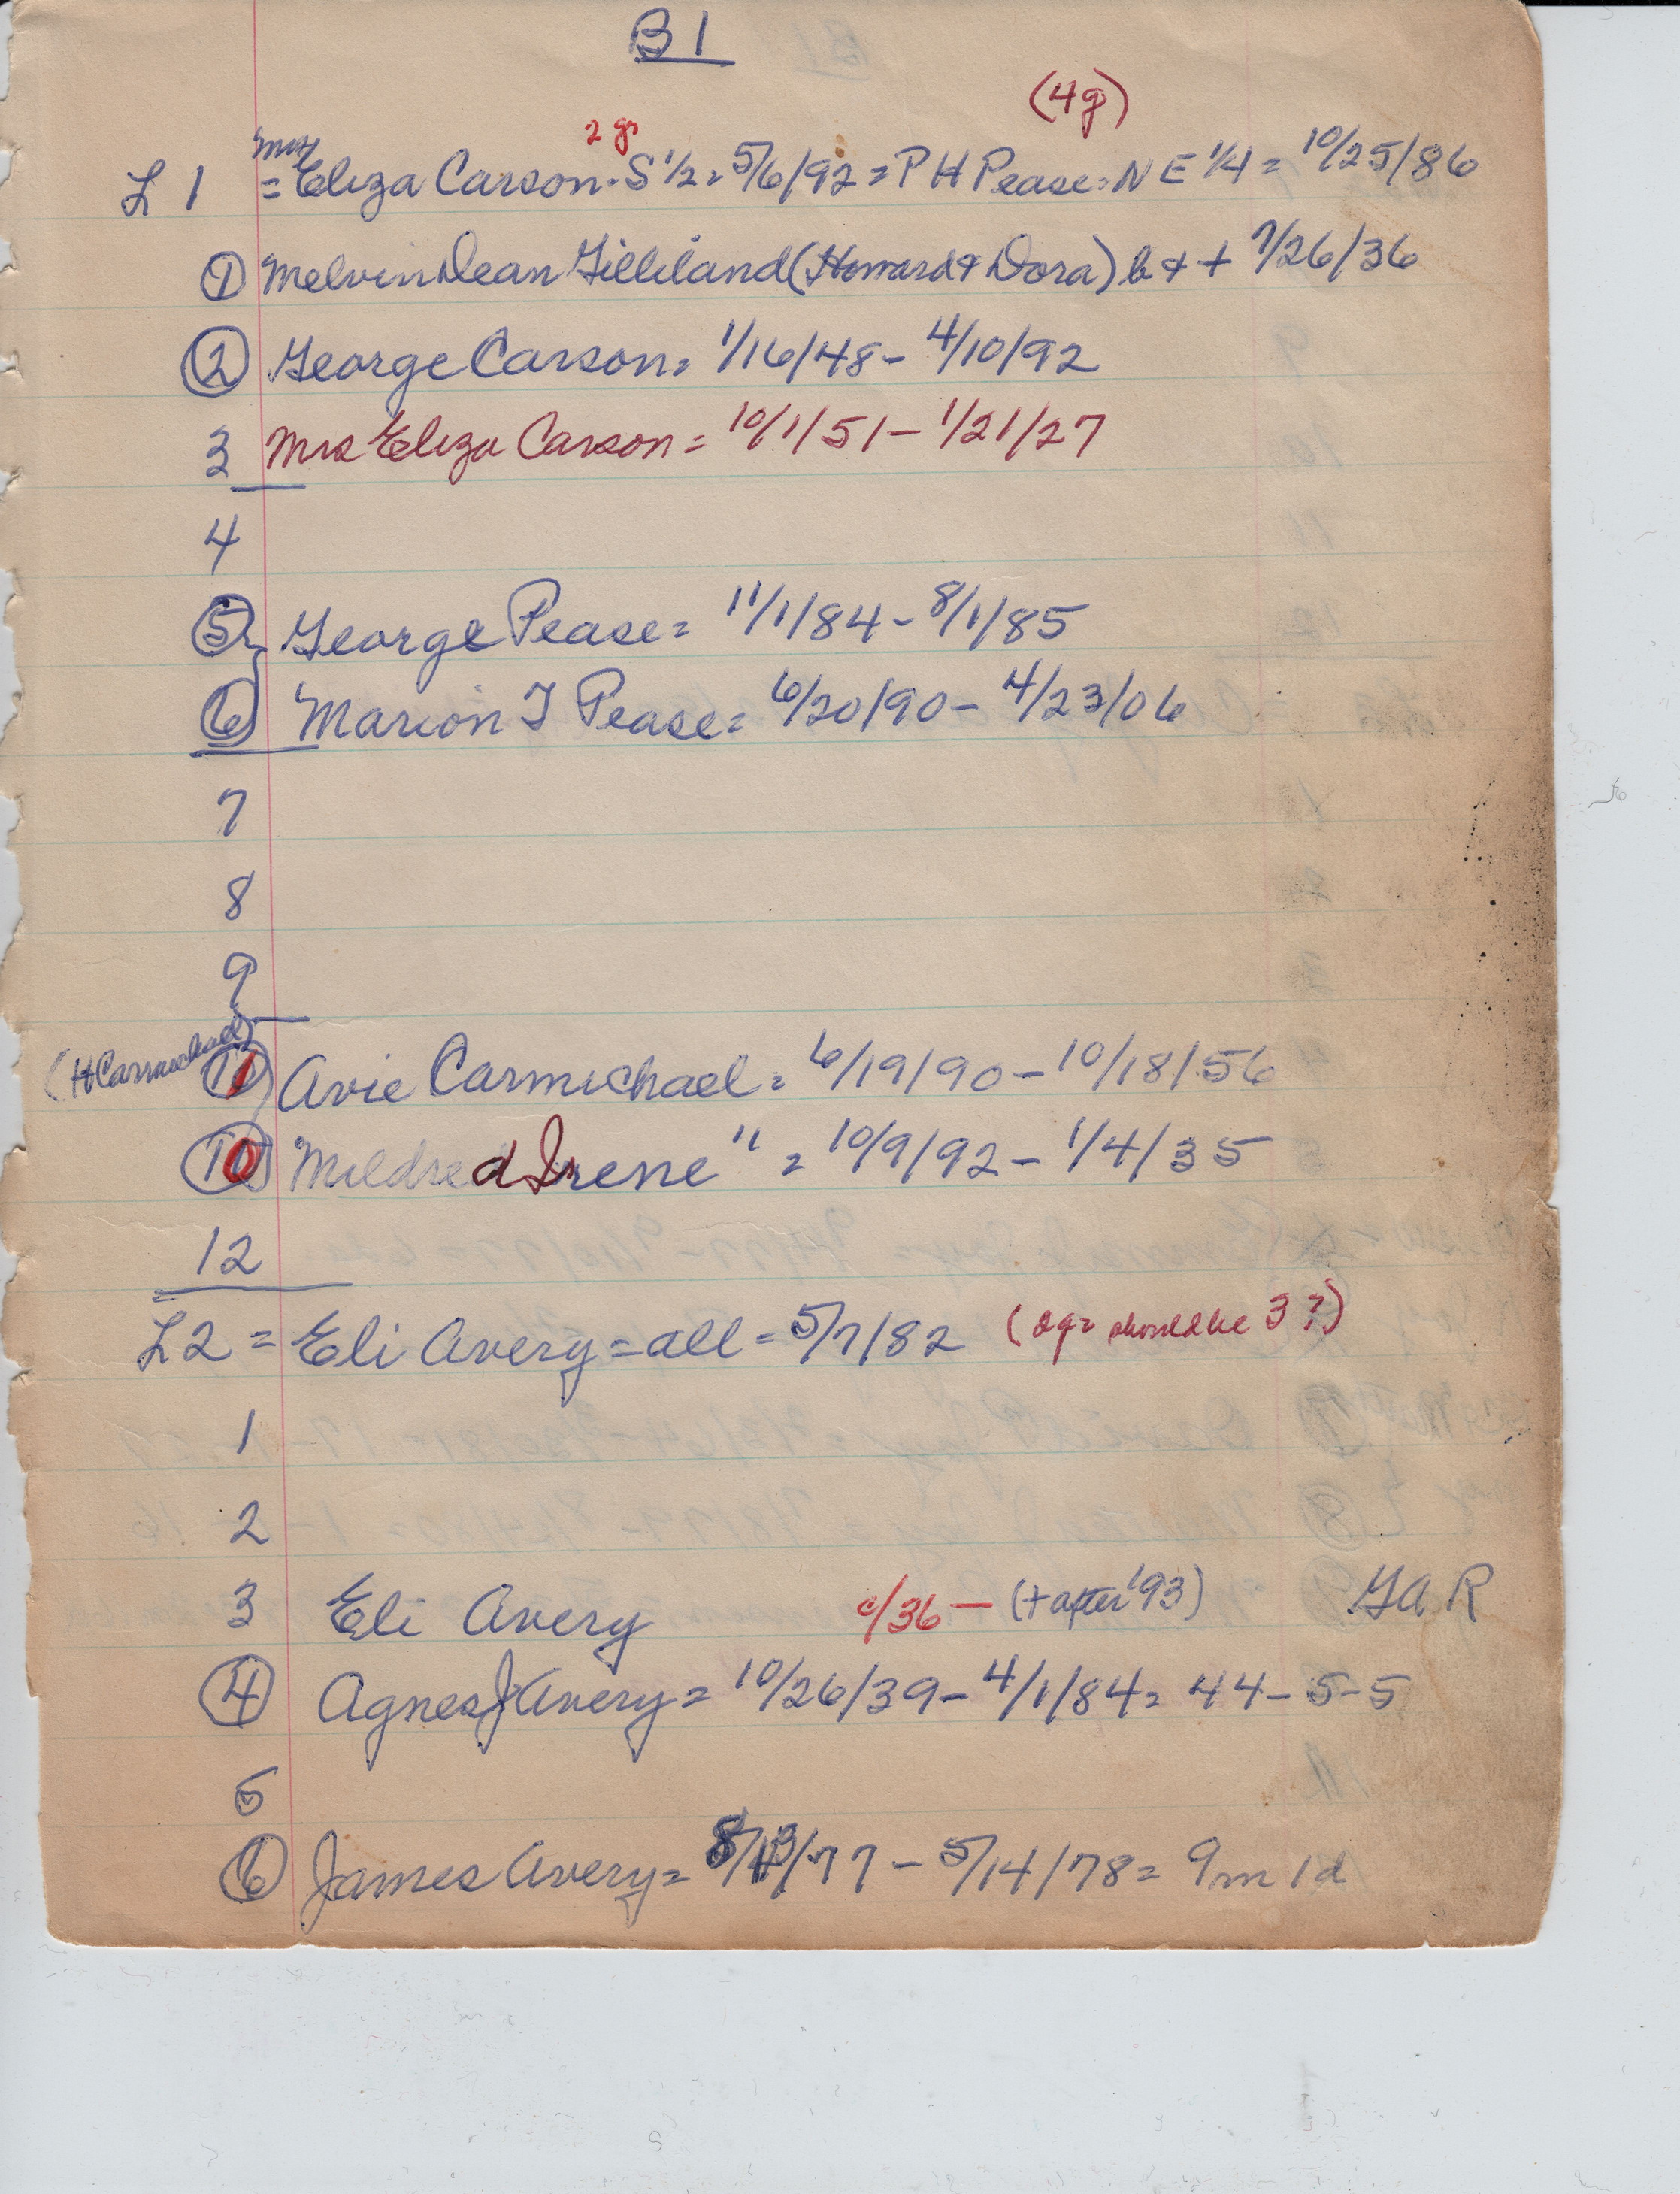 B1
(4g)
2 gs
L 1 = Mrs Eliza Carson = S 1/2 = 5/6/92 = P H Pease = N E 1/4 = 10/25/86
① Melvin Dean Gilliland (Howard & Dora) b & + 7/26/36
② George Carson = 1/16/48 - 4/10/92
3 Mrs Eliza Carson = 10/1/51 - 1/21/27
4
⑤ George Pease = 11/1/84 - 8/1/85
⑥ Marion I Pease = 6/20/90 - 4/23/06
7
8
9
(H Carmichael)
⑪ Avie Carmichael = 6/19/90 - 10/18/56
⑩ Mildred Irene " = 10/9/92 - 1/4/35
12
L2 = Eli Avery = all = 5/7/82 (2g = should be 3?)
1
2
3 Eli Avery c/36 - (+ after '93) GAR
④ Agnes J Avery = 10/26/39 - 4/1/84 = 44-5-5
5
⑥ James Avery = 8/13/77 - 5/14/78 = 9m 1d